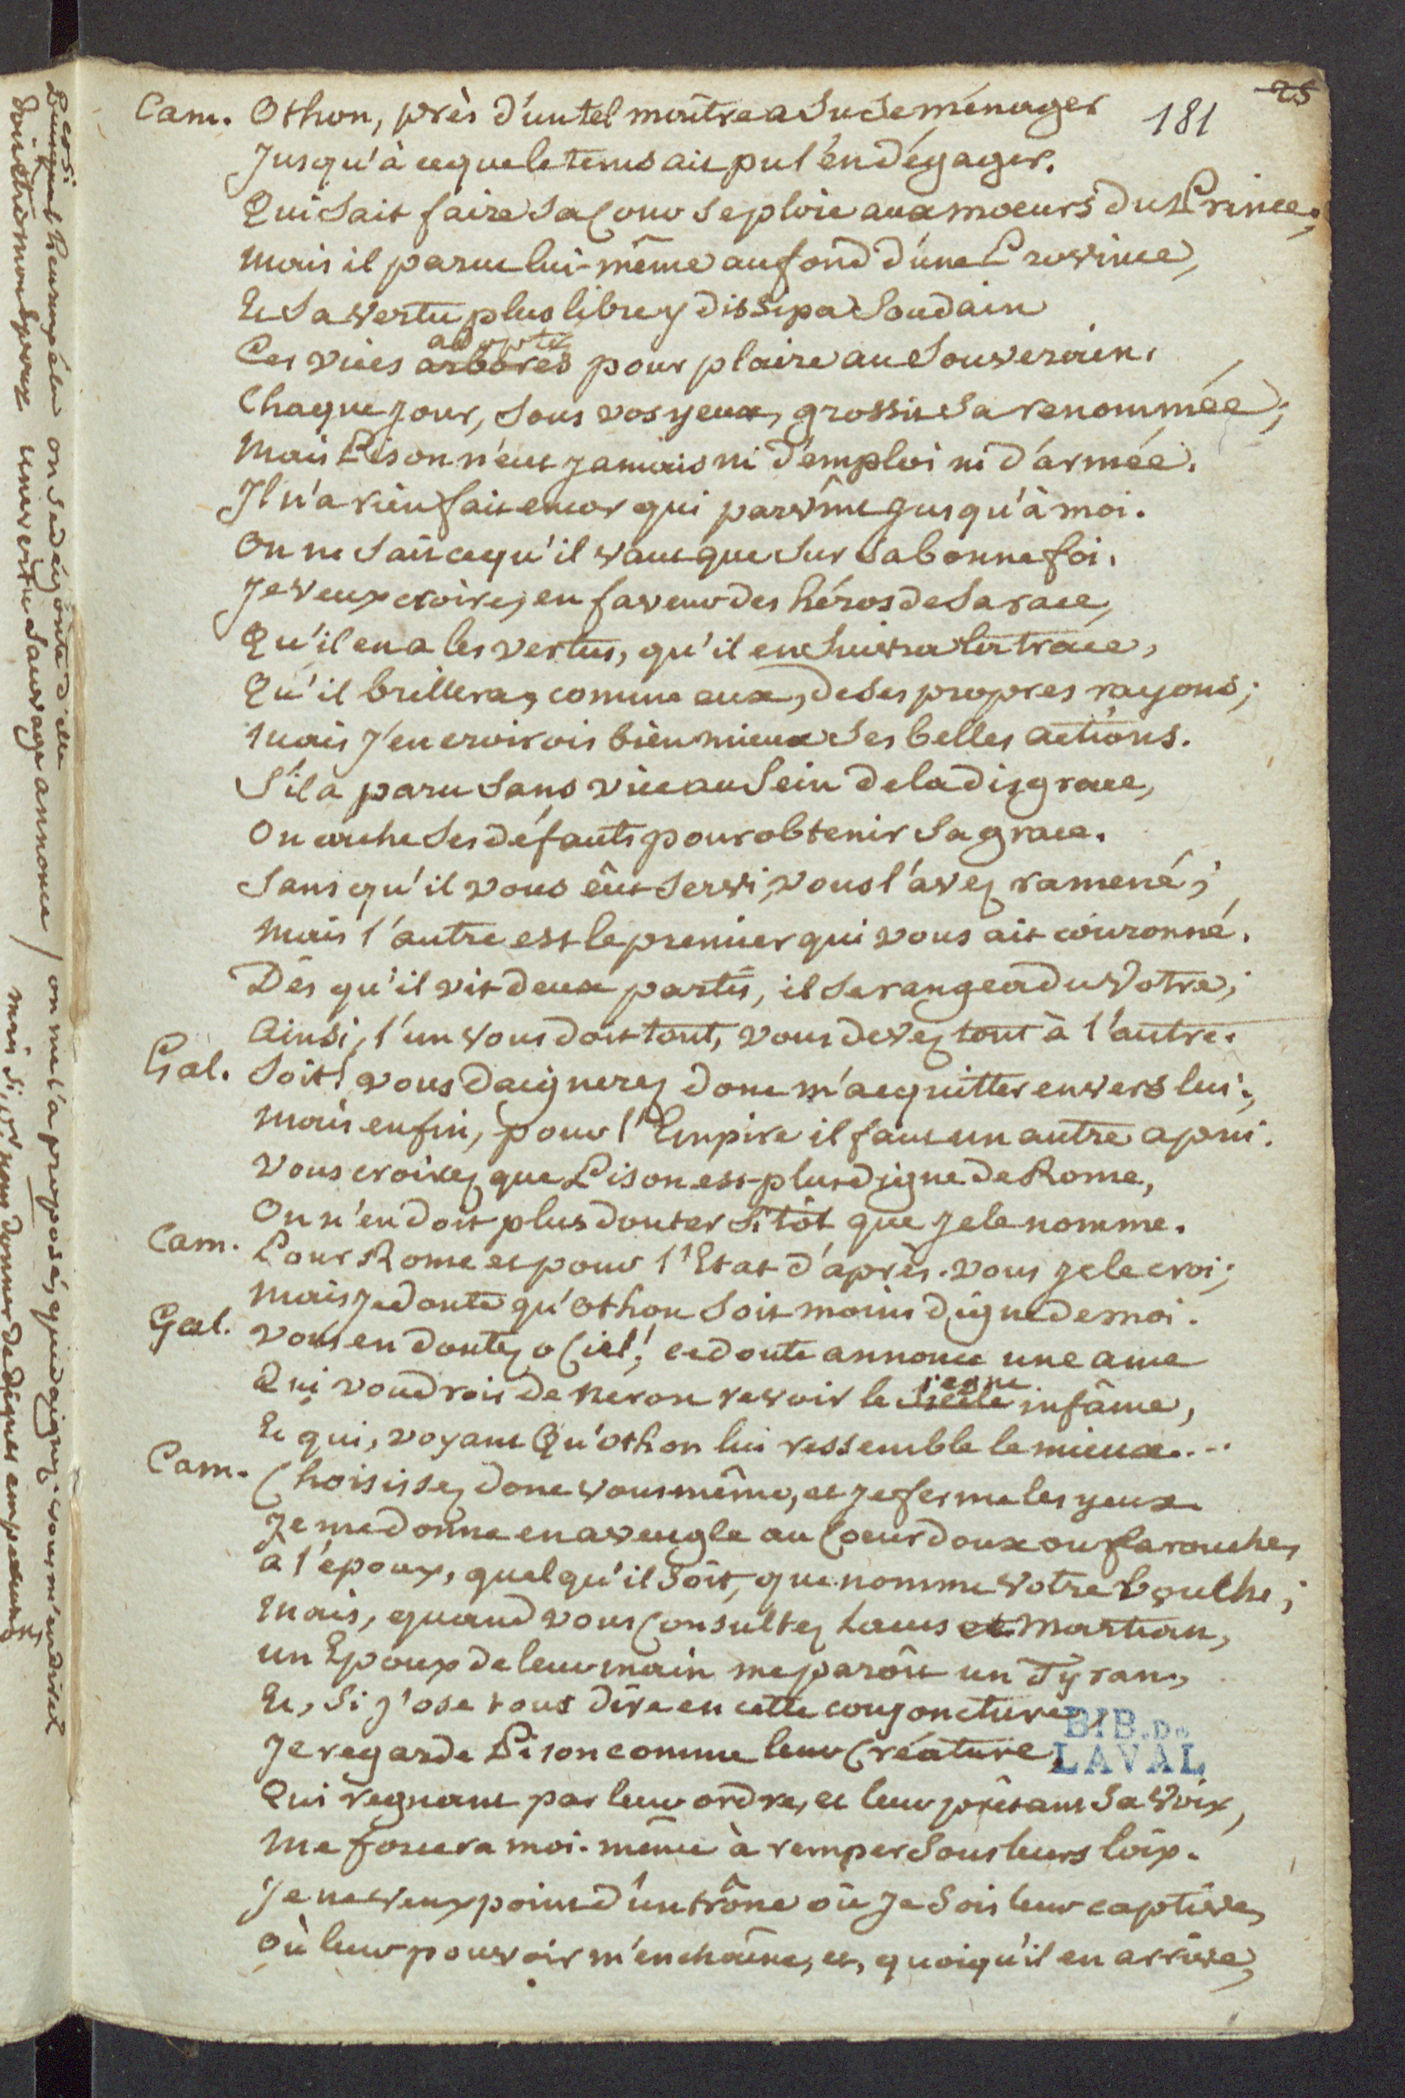 25
181
Cam. Othon, près d'un tel maître a su se ménager
Jusqu'à ce que le tems ait pu l'en dégager.
Qui sait faire sa Cour se ploie aux moeurs du Prince;
Mais il parut lui-même au fond d'une Province,
Et sa vertu plus libre y dissipa soudain
adoptés
Ces vices arborés pour plaire au souverain.
Chaque jour, sous vos yeux, grossit sa renommée;
Mais Pison n'eut jamais ni d'emploi ni d'armée.
Il n'a rien fait encor qui parvînt jusqu'à moi.
On ne sait ce qu'il vaut que sur sa bonne foi.
Je veux croire, en faveur des héros de sa race,
Qu'il en a les vertus, qu'il en suivra la trace,
Qu'il brillera, comme eux, de ses propres rayons;
Mais j'en croirois bien mieux ses belles actions.
S'il a paru sans vice au sein de la disgrace,
On cache ses défauts pour obtenir sa grace.
Sans qu'il vous eût servi, vous l'avez ramené;
Mais l'autre est le premier qui vous ait couronné.
Dès qu'il vit deux partis, il se rangea du Votre;
Ainsi, l'un vous doit tout, vous devez tout à l'autre.
Gal. Soit! vous daignerez donc m'acquitter envers lui;
Mais enfin, pour l'Empire il faut un autre apui.
Vous croirez que Pison est plus digne de Rome,
On n'en doit plus douter sitôt que je le nomme.
Cam. Pour Rome et pour l'Etat d'après-vous je le croi;
Mais je doute qu'Othon soit moins digne de moi.
Gal. Vous en doutez o Ciel! ce doute annonce une ame
regne
Qui voudroit de Neron revoir le siècle infâme,
Et qui, voyant Qu'othon lui ressemble le mieux....
Cam. Choisissez donc vous même, et je ferme les yeux
Je me donne en aveugle au Coeur doux ou farouche,
à l'époux, quel qu'il soit, que nomme votre bouche;
Mais, quand vous Consultez Lacus et Martian,
un Epoux de leur main me paroît un Tyran,
Et, si j'ose tous dire en cette conjoncture,
Je regarde Pison comme leur Créature,
Qui regnant par leur ordre, et leur prêtant sa Voix,
Me forcera moi-même à remper sous leurs loix.
Je ne veux point d'un trône où je sois leur captive,
où leur pouvoir m'enchaîne, et, quoiqu'il en arrive,
BIB. De
LAVAL
on se dégoute d'elle / on me l'a proposé, que daignez-vous m'en dire
doit mon Epoux une vertu sauvage annonce / mais si, pour nous donner de dignes empereurs